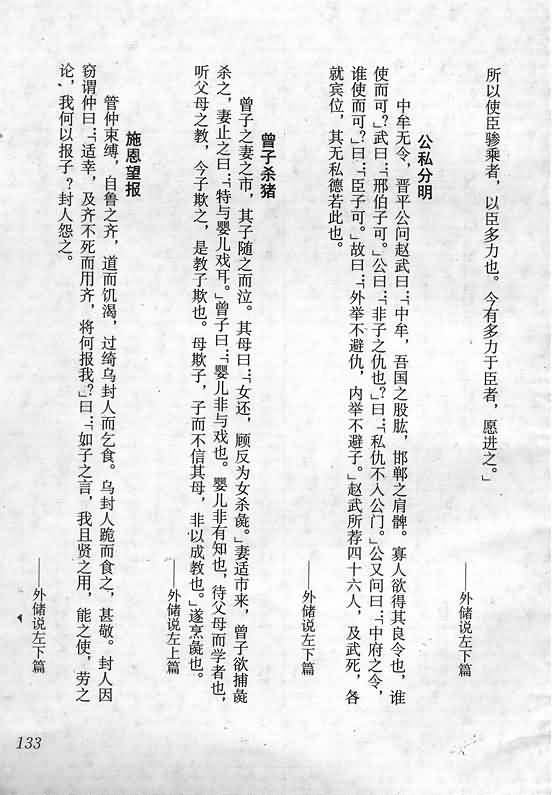 所以使臣骖乘者，以臣多力也。今有多力于臣者，愿进之。」
——外储说左下篇
公私分明
中牟无令，晋平公问赵武曰：「中牟，吾国之股肱，邯郸之肩髀。寡人欲得其良令也，谁
使而可？」武曰：「邢伯子可。」公曰：「非子之仇也？」曰：「私仇不入公门。」公又问曰：「中府之令，
谁使而可？」曰：「臣子可。」故曰：「外举不避仇，内举不避子。」赵武所荐四十六人，及武死，各
就宾位，其无私德若此也。
——外储说左下篇
曾子杀猪
曾子之妻之市，其子随之而泣。其母曰：「女还，顾反为女杀彘。」妻适市来，曾子欲捕彘
杀之，妻止之曰：「特与婴儿戏耳。」曾子曰：「婴儿非与戏也。婴儿非有知也，待父母而学者也，
听父母之教，今子欺之，是教子欺也。母欺子，子而不信其母，非以成教也。」遂烹彘也。
——外储说左上篇
施恩望报
管仲束缚，自鲁之齐，道而饥渴，过绮乌封人而乞食。乌封人跪而食之，甚敬。封人因
窃谓仲曰：「适幸，及齐不死而用齐，将何报我？」曰：「如子之言，我且贤之用，能之使，劳之
论，我何以报子？封人怨之。
——外储说左下篇
133